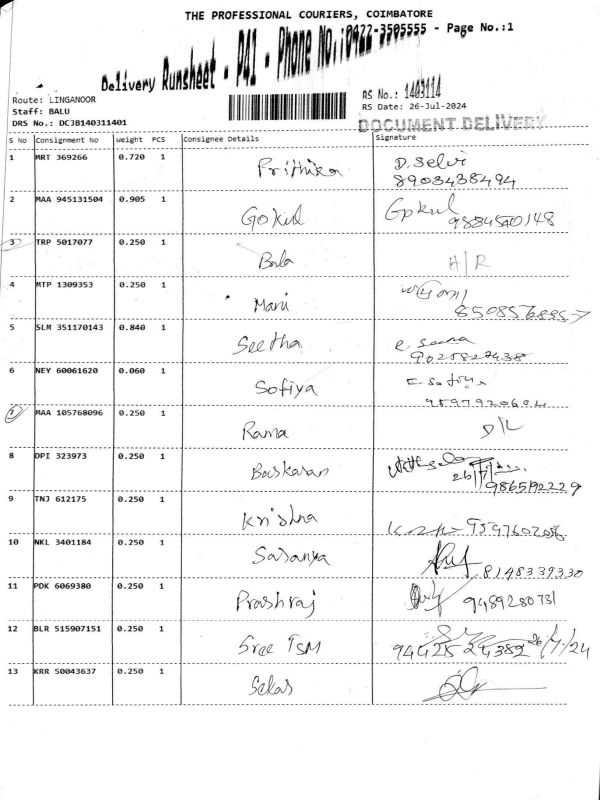 THE PROFESSIONAL COURIERS, COIMBATORE
Delivery Runsheet - P41 - Phone No.:0422-3505555 - Page No.:1
Route: LINGANOOR
Staff: BALU
DRS No.: DCJB140311401
RS No.: 1403114
RS Date: 26-Jul-2024
DOCUMENT DELIVERY
S No Consignment No Weight PCS Consignee Details Signature
1 MRT 369266 0.720 1 Prithika D. Selvi
8903438494
2 MAA 945131504 0.905 1 Gokul Gokul
3 TRP 5017077 0.250 1 Bala H/R
4 MTP 1309353 0.250 1 Mani
5 SLM 351170143 0.840 1 Seetha
9025827438
6 NEY 60061620 0.060 1 Sofiya
7 MAA 105768096 0.250 1 Rama D/L
8 DPI 323973 0.250 1 Baskaran
9 TNJ 612175 0.250 1 Krishna
10 NKL 3401184 0.250 1 Saranya
8148339330
11 PDK 6069380 0.250 1 Prashraj
9489280731
12 BLR 515907151 0.250 1 Sree TSM
13 KRR 50043637 0.250 1 Sekar